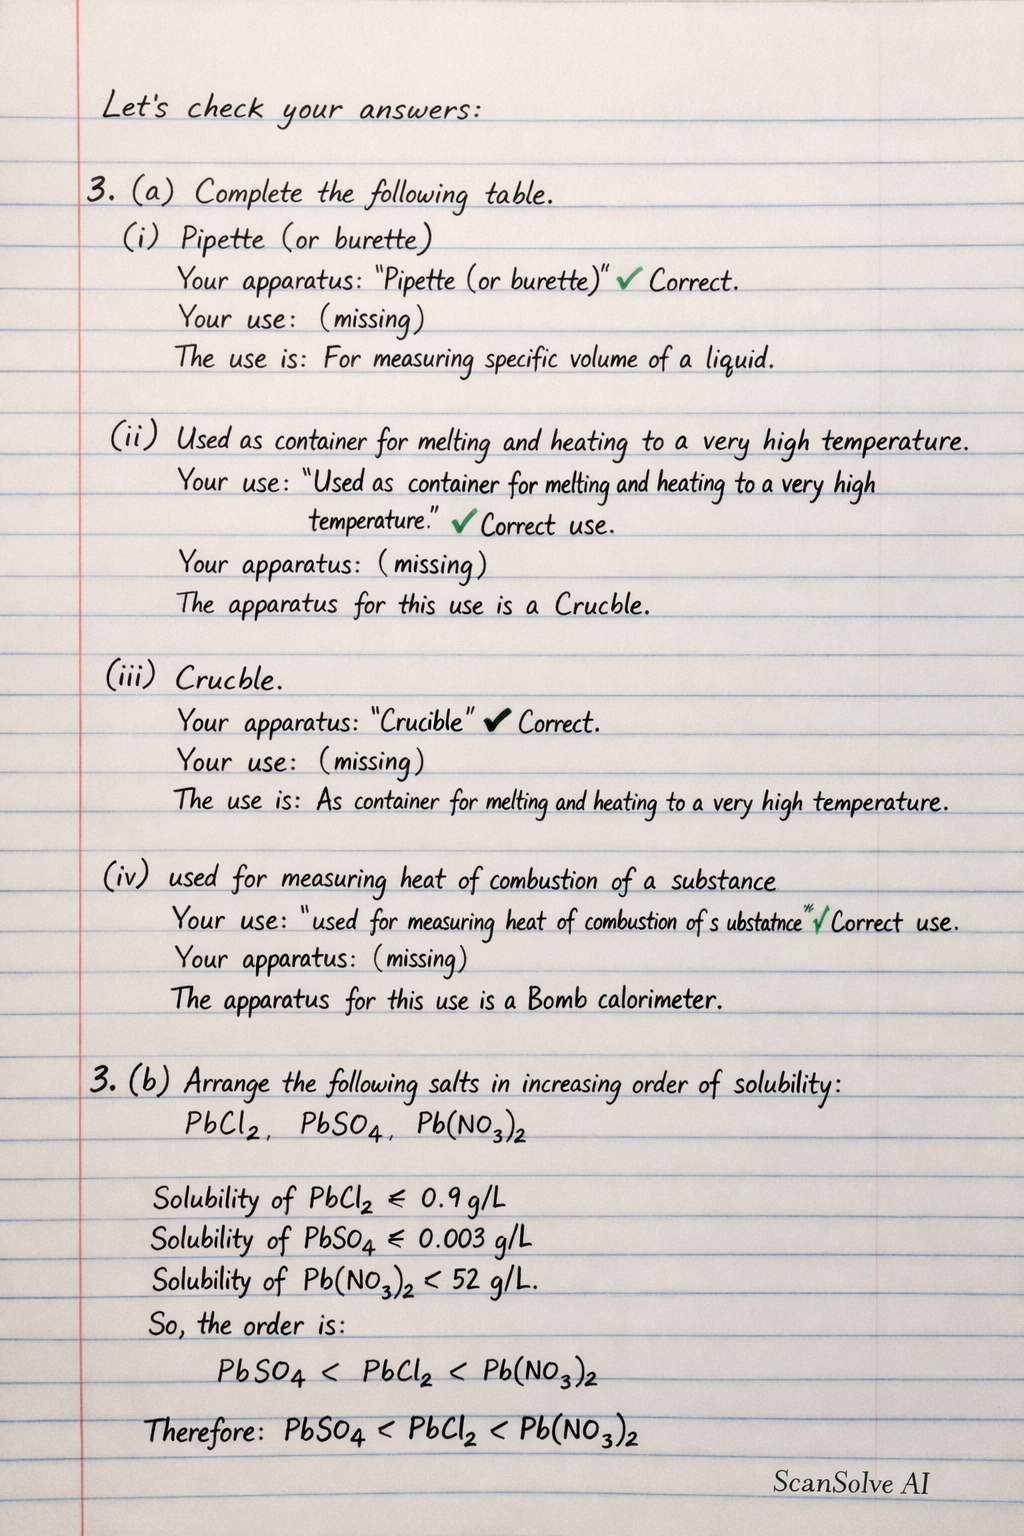 Let's check your answers:
3. (a) Complete the following table.
(i) Pipette (or burette)
Your apparatus: "Pipette (or burette)" ✓ Correct.
Your use: (missing)
The use is: For measuring specific volume of a liquid.
(ii) Used as container for melting and heating to a very high temperature.
Your use: "Used as container for melting and heating to a very high
temperature." ✓ Correct use.
Your apparatus: (missing)
The apparatus for this use is a Crucble.
(iii) Crucble.
Your apparatus: "Crucible" ✔ Correct.
Your use: (missing)
The use is: As container for melting and heating to a very high temperature.
(iv) used for measuring heat of combustion of a substance
Your use: "used for measuring heat of combustion of s ubstatnce" ✓ Correct use.
Your apparatus: (missing)
The apparatus for this use is a Bomb calorimeter.
3. (b) Arrange the following salts in increasing order of solubility:
PbCl₂, PbSO₄, Pb(NO₃)₂
Solubility of PbCl₂ ⩽ 0.9 g/L
Solubility of PbSO₄ ⩽ 0.003 g/L
Solubility of Pb(NO₃)₂ < 52 g/L.
So, the order is:
PbSO₄ < PbCl₂ < Pb(NO₃)₂
Therefore: PbSO₄ < PbCl₂ < Pb(NO₃)₂
ScanSolve AI